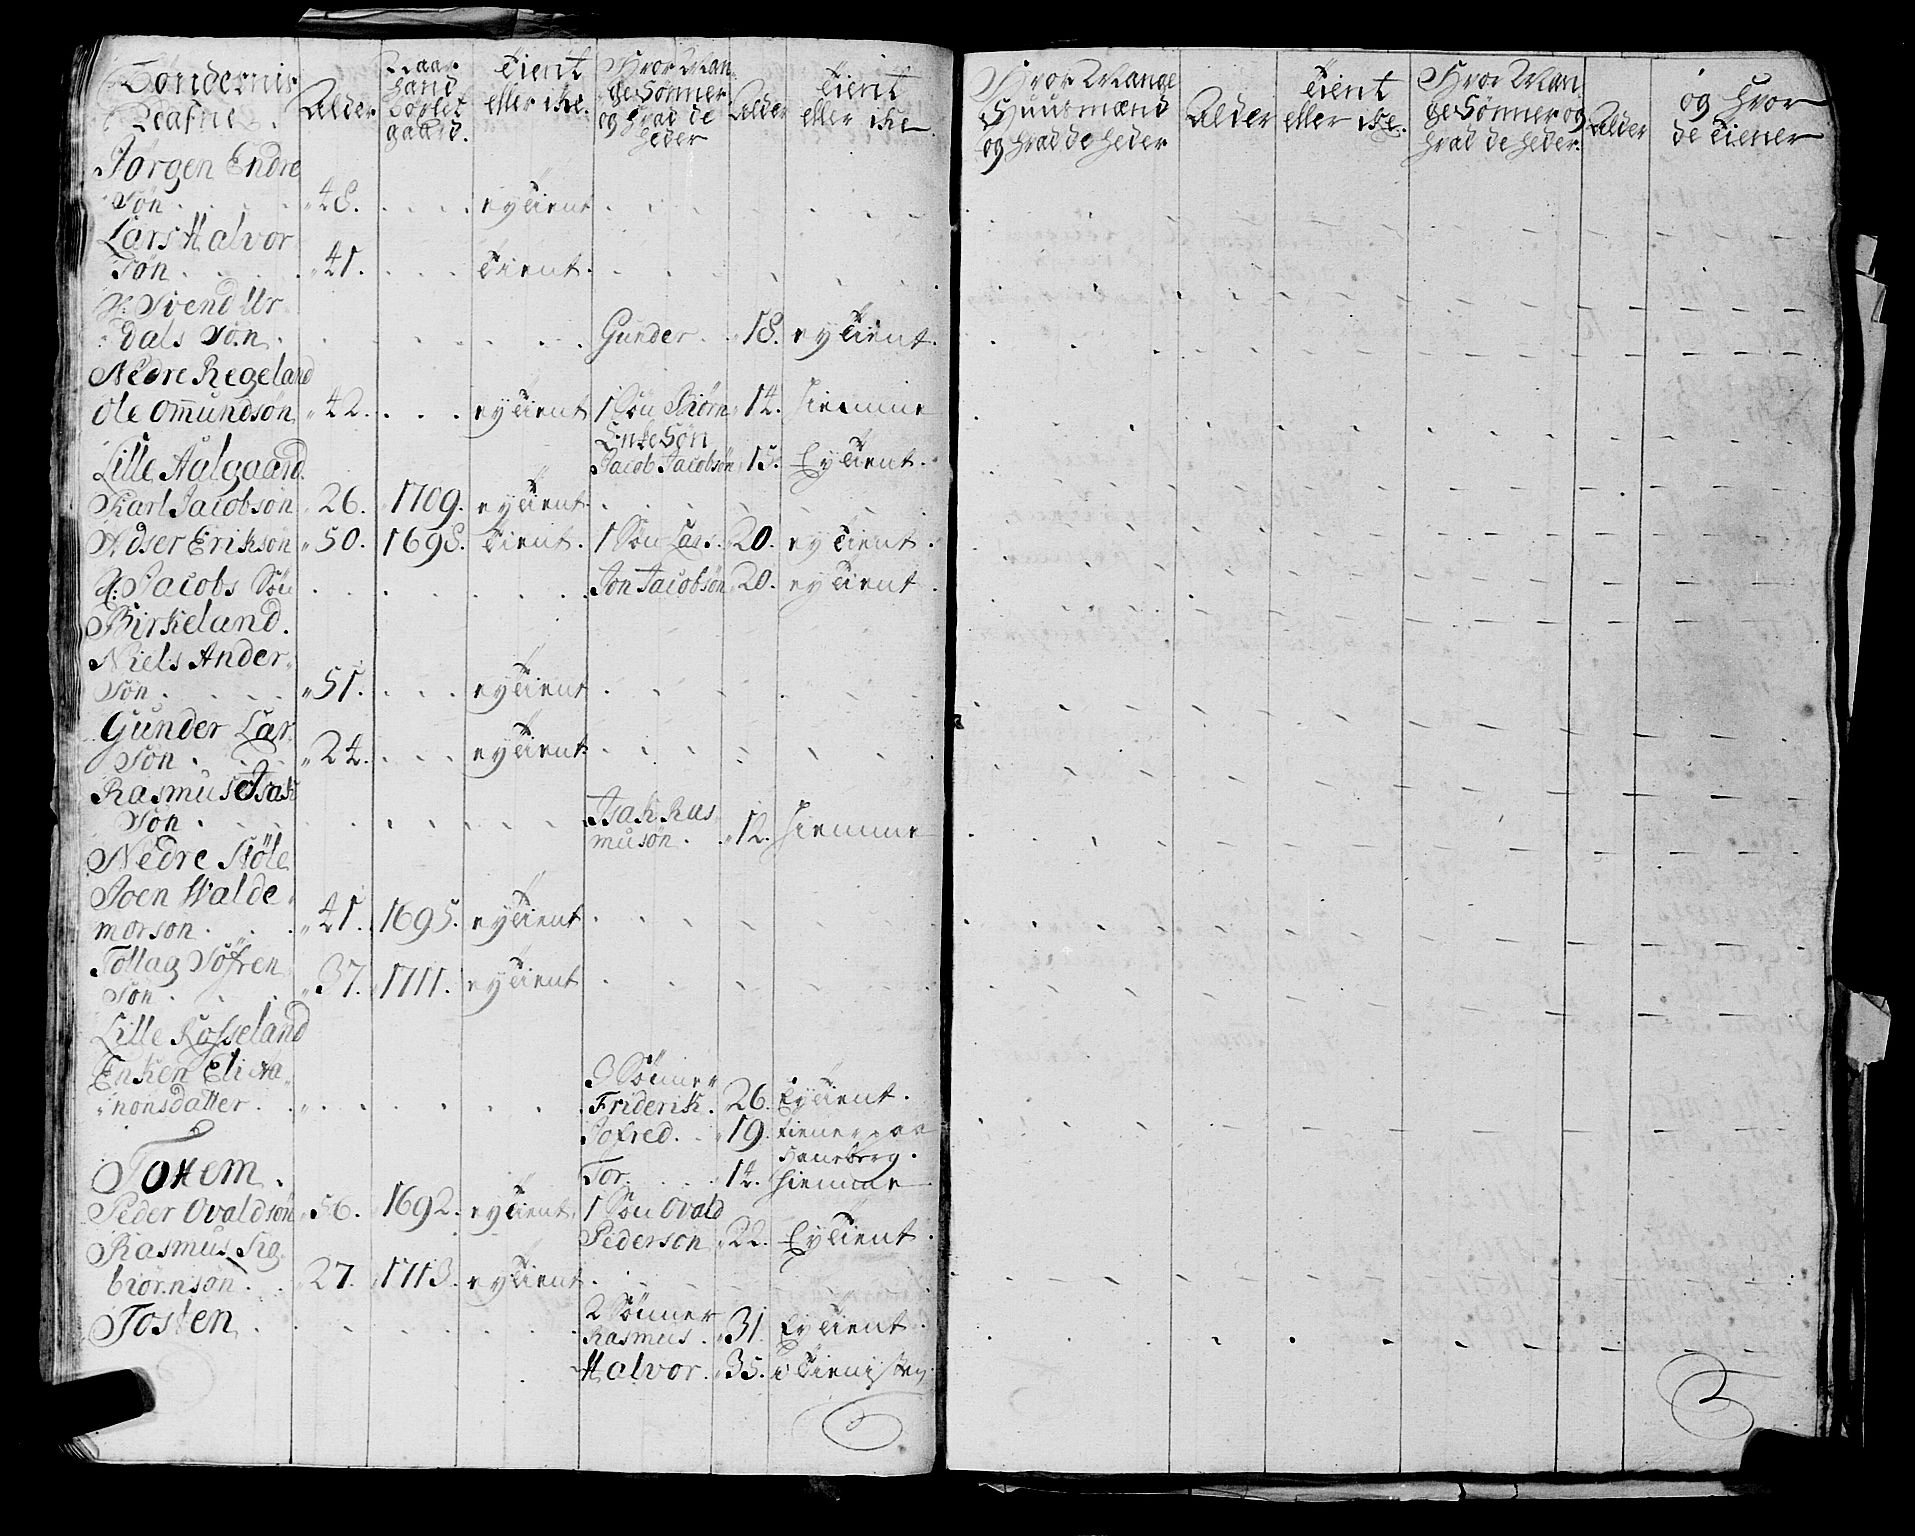 Bøndernis Nafne. Alder Naar hand Bøxlet gaard. Tient eller ike. Hvor Mange Sønner og hvad de heder Alder Tient eller ike
Jørgen Endre
Søn 48. ey Tient
Lars Halvor
Søn 41. Tient.
Svend Ur
dals Søn Gunder 18. ey Tient.
Nedre Regeland
Ole Omundsøn 42. ey Tient 1 Søn Biørn 14. hiemme
Enke Søn
Lille Aalgaard Jacob Jacobsøn 15. Ey Tient.
Karl Jacobsøn 26. 1709. ey Tient
Adser Eriksøn 50. 1698. Tient. 1 Søn Lars. 20. ey Tient.
Jacobs Søn Jon Jacobsøn 20. ey Tient.
Birkeland.
Niels Ander
Søn 51. ey Tient
Gunder Lar
Søn 24. ey Tient
Rasmus Isak
Søn Isak Ras
musøn. 12. hiemme
Nedre Støle
Joen Walde
morsøn 41. 1695. ey Tient
Tollag Søfren
søn 37. 1711. ey Tient
Lille Rosseland
Enken Eli
honsdatter. 3 Sønner
Friderik. 26. Ey Tient.
Jofred. 19. tiener paa
Haneberg.
Tor. 14. hiemme
Peder Ovaldsøn 56. 1692. ey Tient. 1 Søn Ovald
Pedersøn 22. Ey Tient.
Rasmus Sig
biørnsøn. 27. 1713. ey Tient
Tosten 2 Sønner
Rasmus. 31. Ey Tient.
Halvor. 35. i Tieniste
Hvor Mange Huusmænd og hvad de heder Alder Tient eller ike. Hvor Mange Sønner og hvad de heder. Alder og hvor de tiener
5